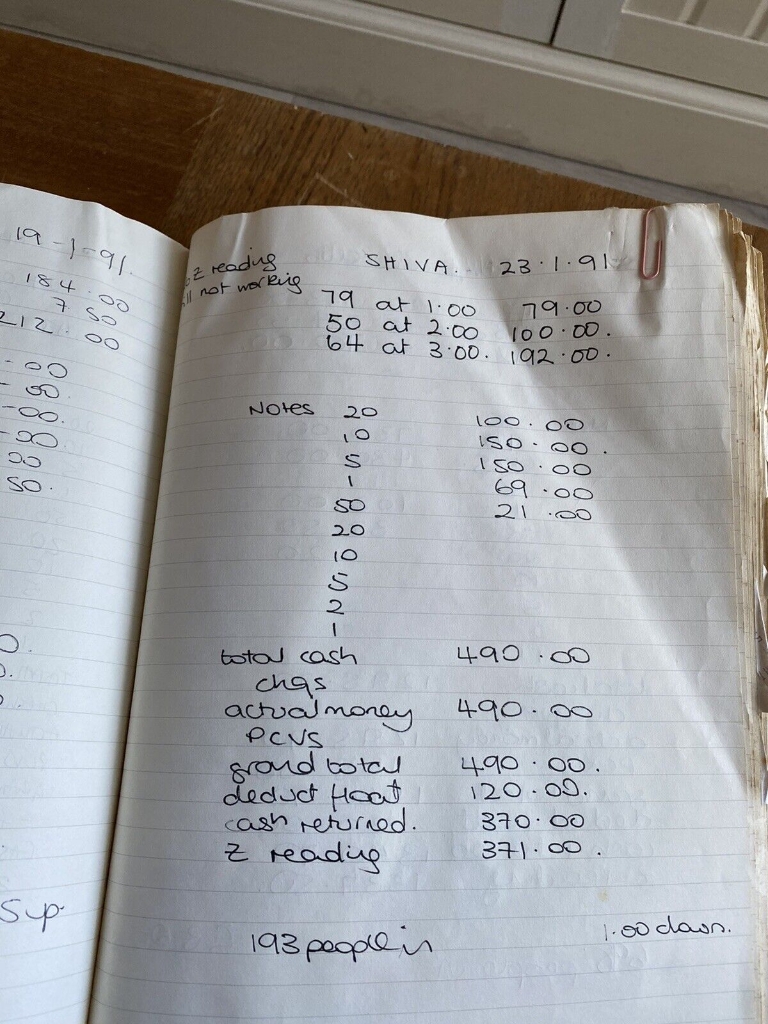 19-1-91.
184.00
7 50
212.00
-00
-00.
-00.
-00
00
50.
0.
5up.
Z reading
not working
SHIVA. 23.1.91
79 at 1.00 79.00
50 at 2.00 100.00.
64 at 3.00. 192.00.
Notes 20 100.00
10 150.00.
5 150.00
1 69.00
50 21.00
20
10
5
2
1
total cash 490.00
chqs
actual money 490.00
PCVS
grand total 490.00.
deduct float 120.00.
cash returned. 370.00
Z reading 371.00.
193 people in 1.00 down.